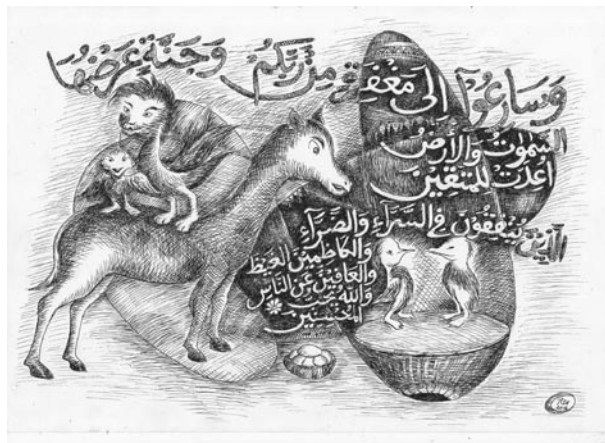 وَسَارِعُوٓا إِلَى مَغْفِرَةٍ مِنْ رَبِّكُمْ وَجَنَّةٍ عَرْضُهَا
السَّمٰوٰتُ وَالْأَرْضُ
أُعِدَّتْ لِلْمُتَّقِيْنَ
الَّذِيْنَ يُنْفِقُوْنَ فِى السَّرَّآءِ وَالضَّرَّآءِ
وَالْكَاظِمِيْنَ الْغَيْظَ
وَالْعَافِيْنَ عَنِ النَّاسِ
وَاللّٰهُ يُحِبُّ
الْمُحْسِنِيْنَ